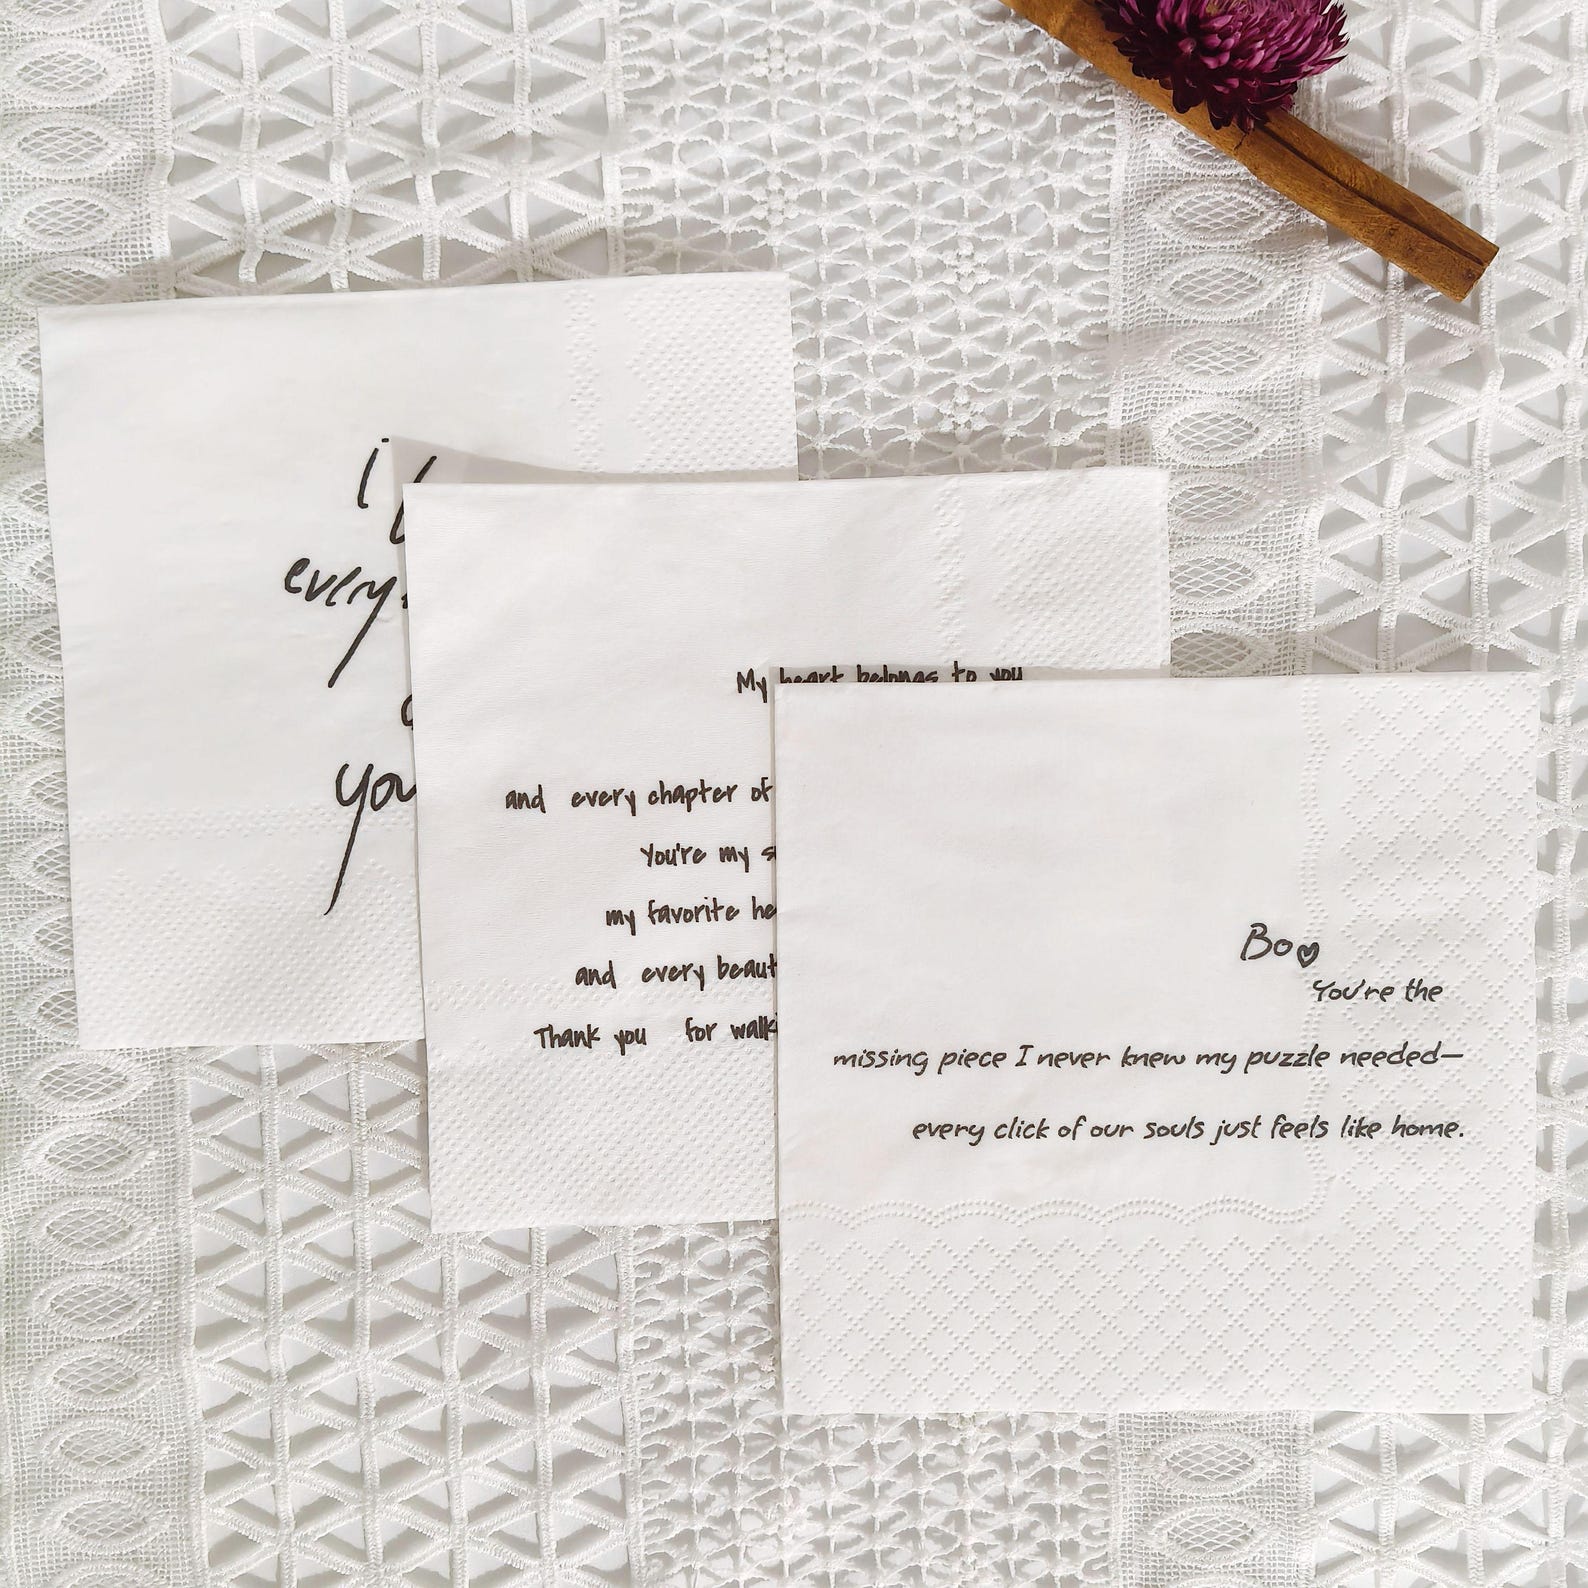 i
every
you
My heart belongs to you
and every chapter of
You're my
my favorite
and every
Thank you for
Bo
You're the
missing piece I never knew my puzzle needed—
every click of our souls just feels like home.